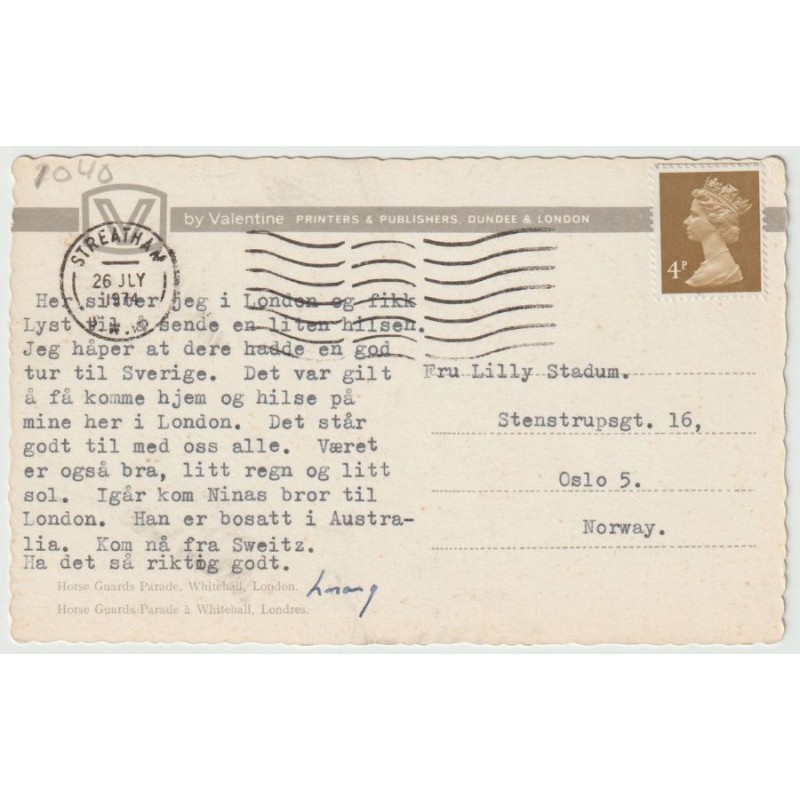 1040
V
by Valentine PRINTERS & PUBLISHERS, DUNDEE & LONDON
STREATHAM
26 JLY
1974
S.W.
4P
Her sitter jeg i London og fikk
Lyst til å sende en liten hilsen.
Jeg håper at dere hadde en god
tur til Sverige. Det var gilt
å få komme hjem og hilse på
mine her i London. Det står
godt til med oss alle. Været
er også bra, litt regn og litt
sol. Igår kom Ninas bror til
London. Han er bosatt i Austra-
lia. Kom nå fra Sweitz.
Ha det så riktig godt.
Fru Lilly Stadum.
Stenstrupsgt. 16,
Oslo 5.
Norway.
Horse Guards Parade, Whitehall, London.
Horse Guards Parade à Whitehall, Londres.